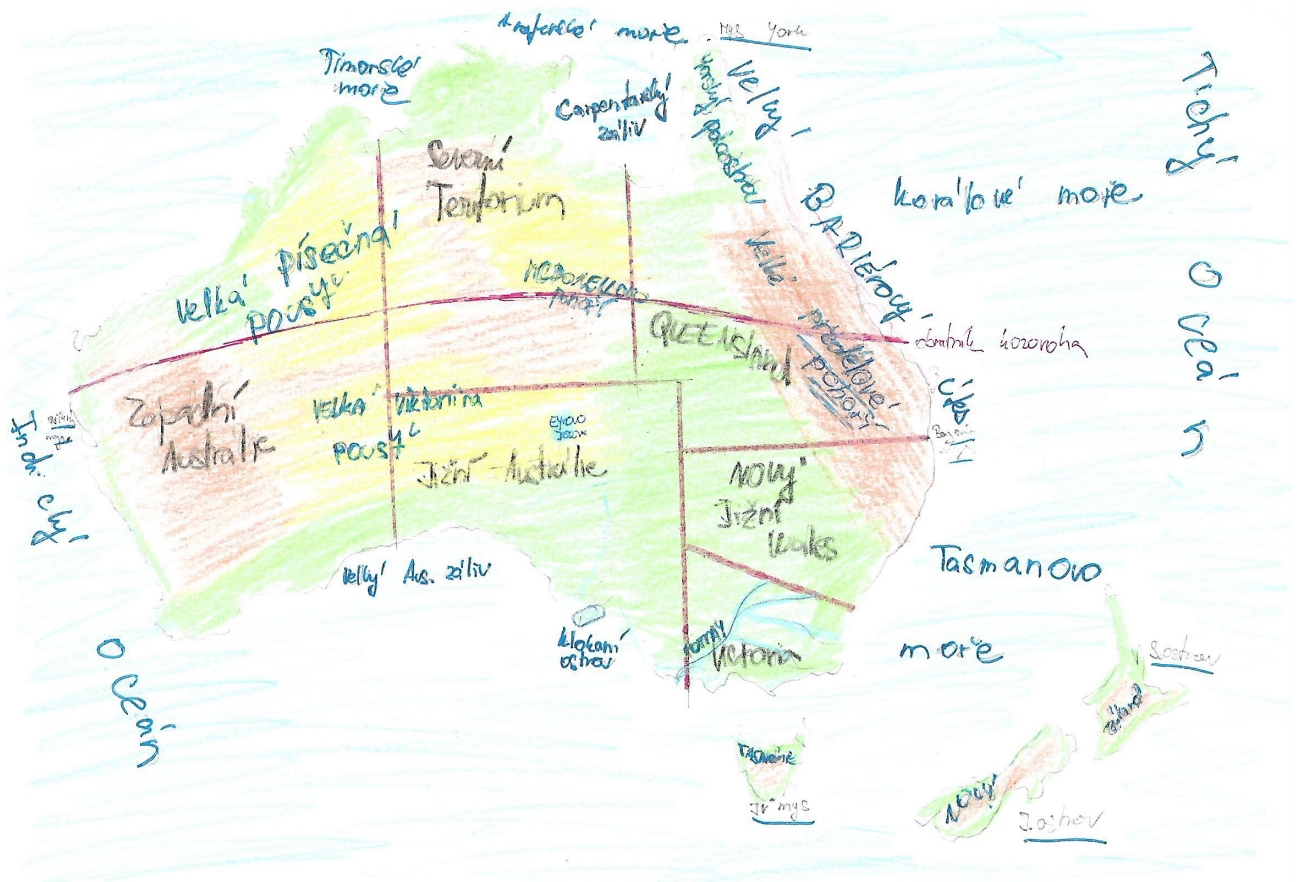 Arafurské moře
Mys York
Timorské
moře
Carpentarský
záliv
Yorský poloostrov
Velký
BARIÉROVÝ
Útes
Korálové moře
Tichý
Oceán
Severní
Teritorium
Velká písečná
POUSŤ
Velké
předělové
pohoří
QUEENSLAND
obratník kozoroha
Západní
Austrálie
VELKÁ Viktoriina
POUSŤ
Eyrovo
Jezero
Jižní Austrálie
Nový
Jižní
Wales
Indický
Oceán
Velký Aus. záliv
Klokaní
ostrov
Victoria
Tasmanovo
moře
S.ostrov
Zéland
TASMÁNIE
Již mys
Nový
J.ostrov